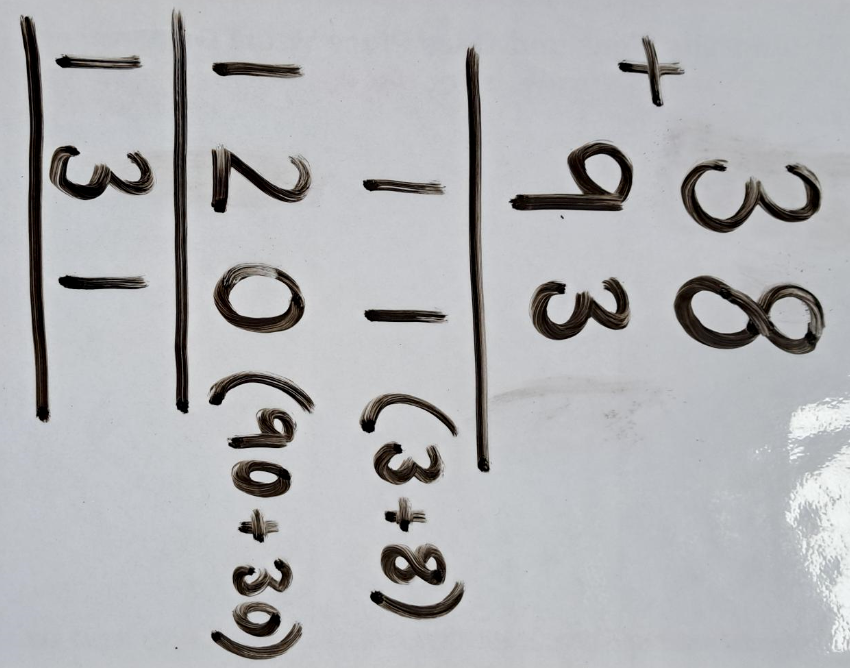 38
+ 93
11 (3+8)
120 (90+30)
131